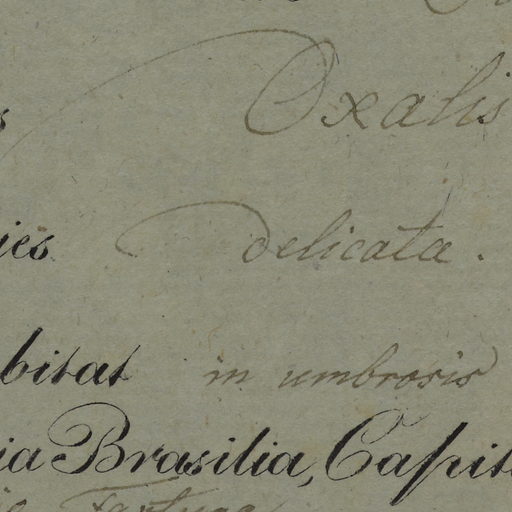 s Oxalis
ies delicata.
bitat in umbrosis
ia Brasilia, Capit